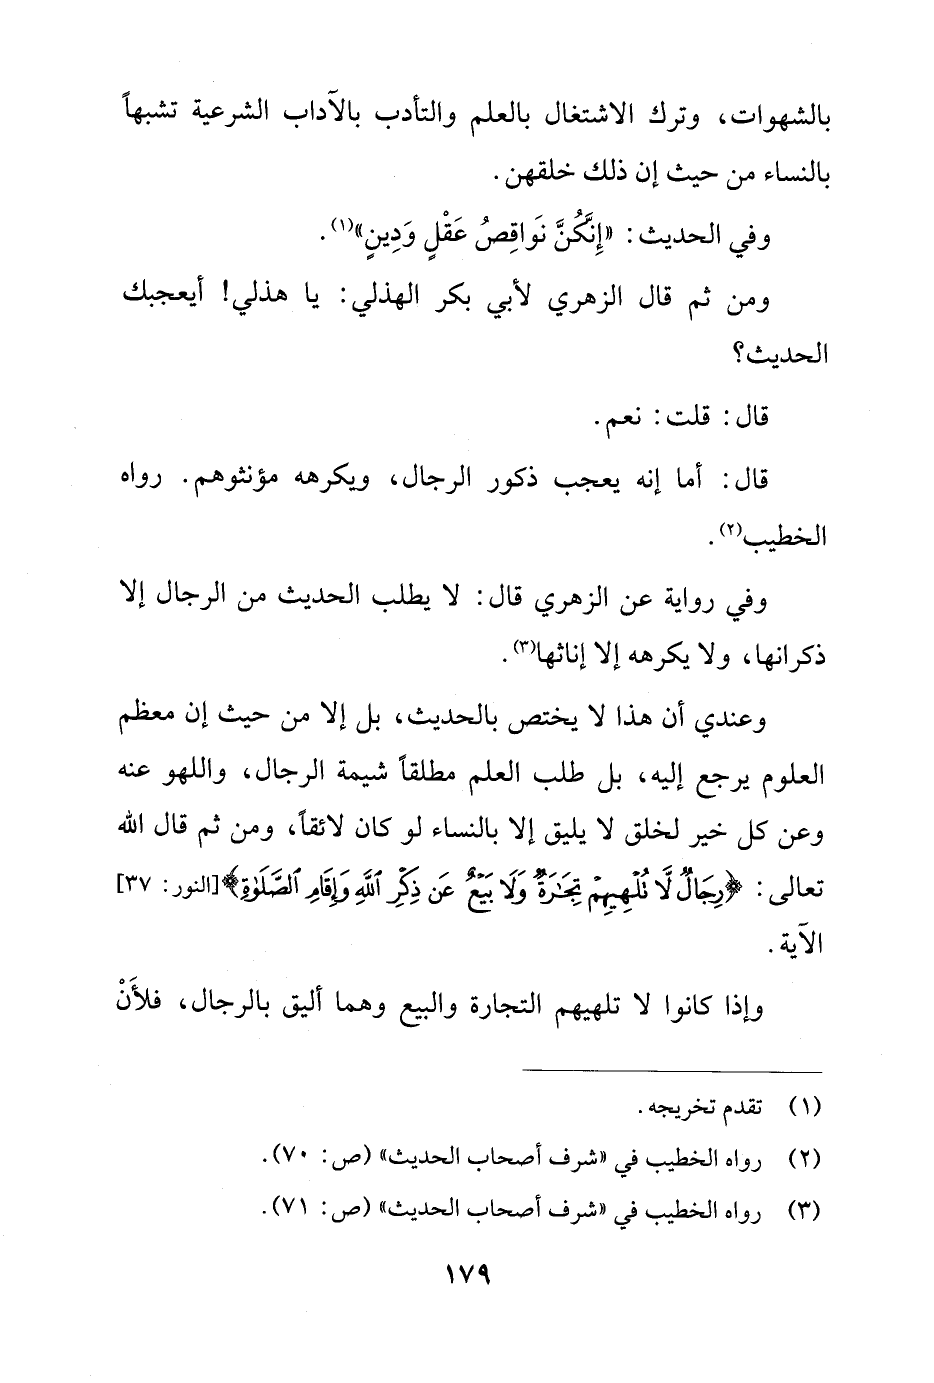 بالشهوات، وترك الاشتغال بالعلم والتأدب بالآداب الشرعية تشبهاً
بالنساء من حيث إن ذلك خلقهن.
وفي الحديث: «إِنَّكُنَّ نَوَاقِصُ عَقْلٍ وَدِينٍ»(١).
ومن ثم قال الزهري لأبي بكر الهذلي: يا هذلي! أيعجبك
الحديث؟
قال: قلت: نعم.
قال: أما إنه يعجب ذكور الرجال، ويكرهه مؤنثوهم. رواه
الخطيب(٢).
وفي رواية عن الزهري قال: لا يطلب الحديث من الرجال إلا
ذكرانها، ولا يكرهه إلا إناثها(٣).
وعندي أن هذا لا يختص بالحديث، بل إلا من حيث إن معظم
العلوم يرجع إليه، بل طلب العلم مطلقاً شيمة الرجال، واللهو عنه
وعن كل خير لخلق لا يليق إلا بالنساء لو كان لائقاً، ومن ثم قال الله
تعالى: ﴿رِجَالٌ لَّا تُلْهِيهِمْ تِجَٰرَةٌ وَلَا بَيْعٌ عَن ذِكْرِ ٱللَّهِ وَإِقَامِ ٱلصَّلَوٰةِ﴾[النور: ٣٧]
الآية.
وإذا كانوا لا تلهيهم التجارة والبيع وهما أليق بالرجال، فلأَنْ
(١) تقدم تخريجه.
(٢) رواه الخطيب في «شرف أصحاب الحديث» (ص: ٧٠).
(٣) رواه الخطيب في «شرف أصحاب الحديث» (ص: ٧١).
١٧٩